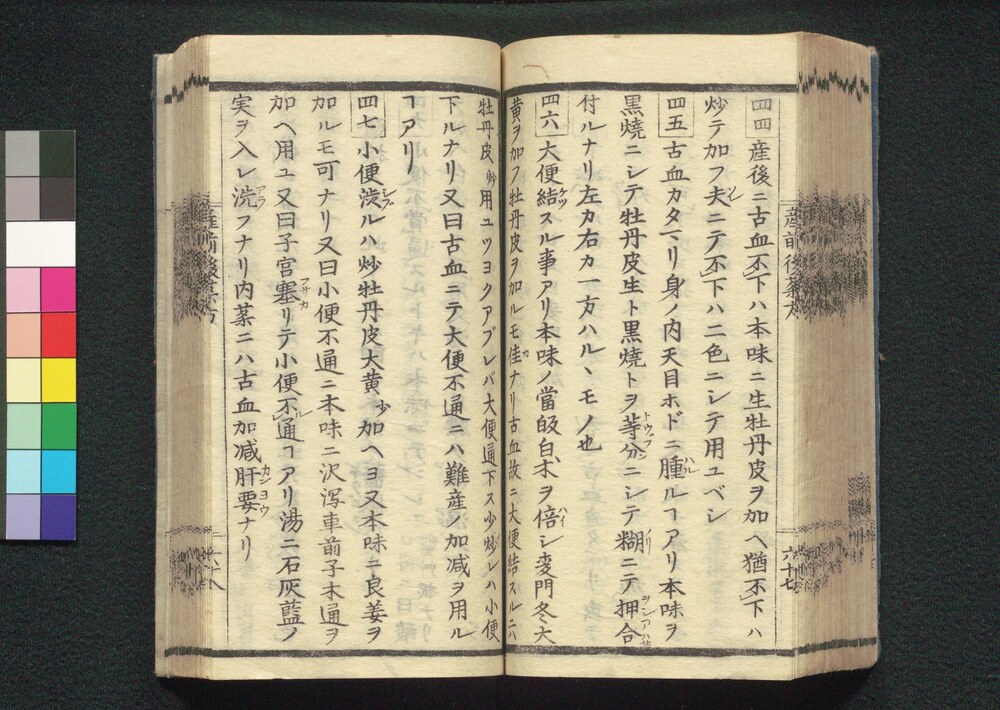 四四 産後ニ古血不下ハ本味ニ生牡丹皮ヲ加ヘ猶不下ハ
炒テ加フ夫ニテ不下ハ二色ニシテ用ユベシ
四五 古血カタマリ身ノ内天目ホドニ腫ルヿアリ本味ヲ
黒焼ニシテ牡丹皮生ト黒焼トヲ等分ニシテ糊ニテ押合
付ルナリ左カ右カ一方ハルヽモノ也
四六 大便結スル事アリ本味ノ當皈白朮ヲ倍シ麦門冬大
黄ヲ加フ牡丹皮ヲ加ルモ佳ナリ古血故ニ大便結スルニハ
牡丹皮炒用ユツヨクアブレバ大便通下ス少炒レハ小便
下ルナリ又曰古血ニテ大便不通ニハ難産ノ加减ヲ用ル
ヿアリ
四七 小便渋ルハ炒牡丹皮大黄少加ヘヨ又本味ニ良姜ヲ
加ルモ可ナリ又曰小便不通ニ本味ニ沢泻車前子木通ヲ
加ヘ用ユ又曰子宮塞リテ小便不通ヿアリ湯ニ石灰藍ノ
実ヲ入レ洗フナリ内薬ニハ古血加减肝要ナリ
産前後薬方
六十七